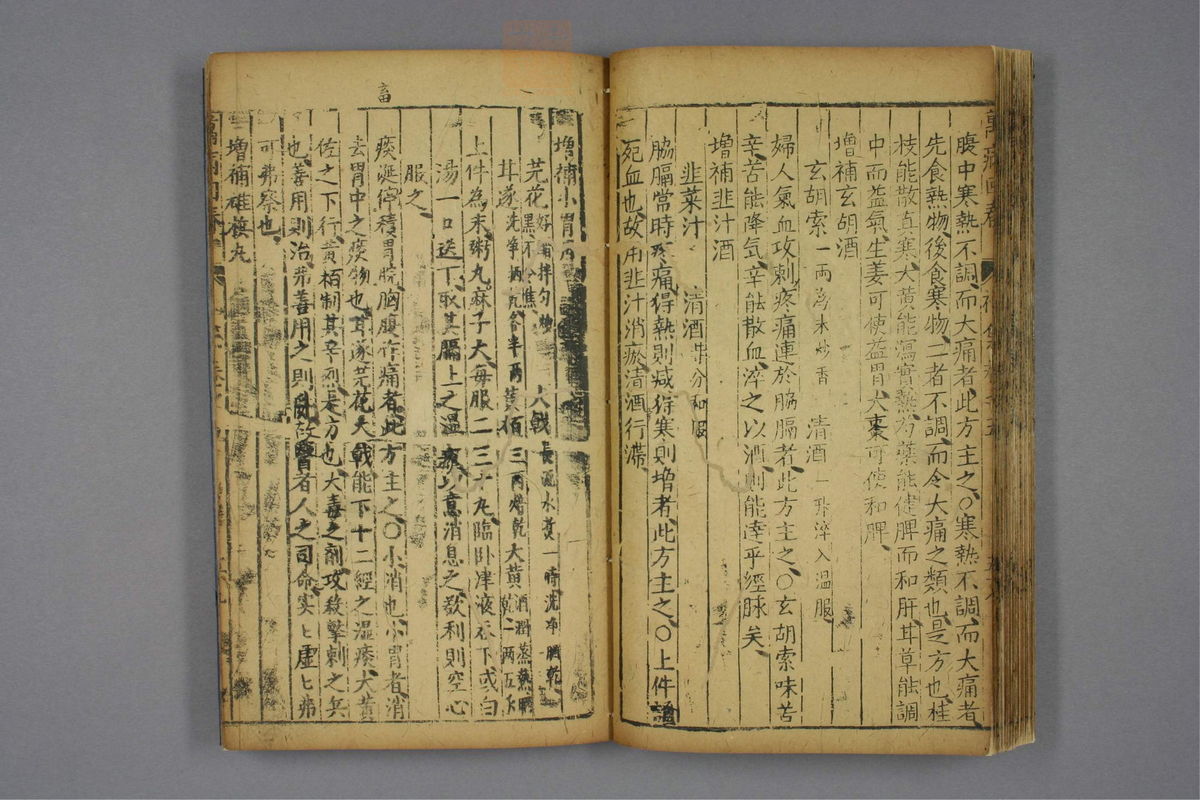 腹中寒熱不調而大痛者此方主之○寒熱不調而大痛者
先食熱物後食寒物二者不調而令大痛之類也是方也桂
枝能散真寒大黃能瀉實熱芍藥能健脾而和肝甘草能調
中而益氣生姜可使益胃大棗可使和脾
增補玄胡酒
玄胡索一兩為末炒香 清酒一 淬入溫服
婦人氣血攻刺疼痛連於脇膈者此方主之○玄胡索味苦
辛苦能降氣辛能散血淬之以酒則能達乎經脉矣
增補韭汁酒
韭菜汁 清酒 分和服
脇膈常時疼痛得熱則減得寒則增者此方主之○上件
死血也故用韭汁消瘀清酒行滯
增補小胃
芫花好醋拌勻炒 黑不令焦 大戟長流水煮一時洗淨晒乾
甘遂洗淨 半兩 黃栢三兩焙乾 大黃酒潤蒸熟晒乾一兩五
上件為末粥丸麻子大每服二三十丸臨卧津液吞下或白
湯一口送下取其膈上之溫 以意消息之欲利則空心
服之
畜
痰涎停積胃脘胸腹作痛者此方主之○小消也小胃者消
去胃中之痰物也甘遂芫花大戟能下十二經之濕痰大黃
佐之下行黃栢制其辛烈是方也大毒之劑攻殺擊刺之兵
也善用則治弗善用之則 故醫者人之司命實〻虛〻弗
可弗察也
增補碓 丸